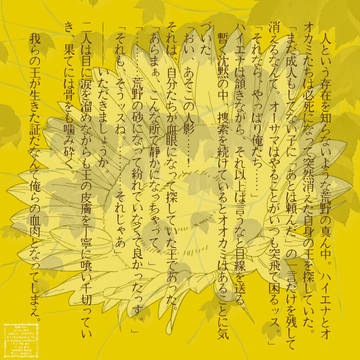 人という存在を知らないような荒野の真ん中。ハイエナとオ
オカミたちは必死になって突然消えた自身の王を探していた。
「まだ成人もしてない子に『あとは頼んだ』の一言だけを残して
消えるなんて、オーサマはやることがいつも突飛で困るッス。」
「それなら、やっぱり俺たち……」
ハイエナは頷きながら、それ以上は言うなと目線を送る。
暫く沈黙の中、捜索を続けているとオオカミはあることに気
づいた。
「おい、あそこの人影……！」
それは、自分たちが血眼になって探していた王であった。
「あらまぁ、こんな所で静かになっちゃって。」
「……荒野の砂になって紛れていなくて良かったっす。」
「それも、そうッスね……。それじゃあ」
――いただきましょうか
二人は目に涙を溜めながらも王の皮膚を丁寧に喰い千切ってい
き、果てには骨をも噛み砕く。
我らの王が生きた証だなんぞ、俺らの血肉となってしまえ。